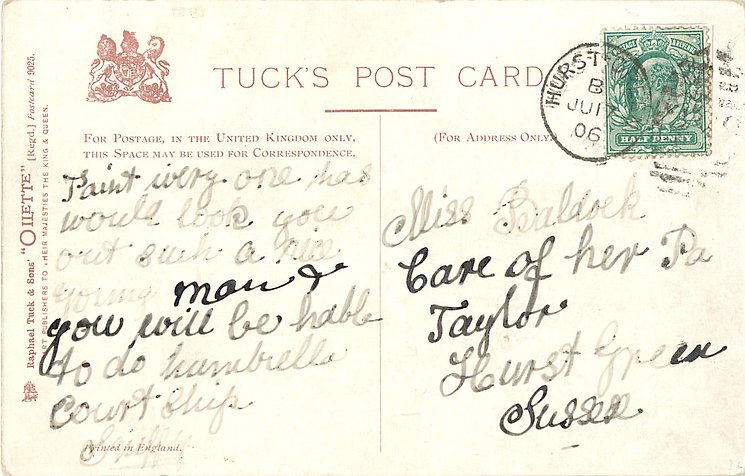 TUCK'S POST CARD
FOR POSTAGE, IN THE UNITED KINGDOM ONLY,
THIS SPACE MAY BE USED FOR CORRESPONDENCE.
(FOR ADDRESS ONLY.
Raphael Tuck & Sons' "OILETTE" [Regd.] Postcard 9025.
ART PUBLISHERS TO THEIR MAJESTIES THE KING & QUEEN.
Taint very one has
would look you
out such a nice
young man &
you will be hable
to do humbrella
Court Ship
Printed in England.
Miss Baldock
Care of her Pa
Taylor
Hurst Green
Sussex
B
JU 17
06
HALF PENNY